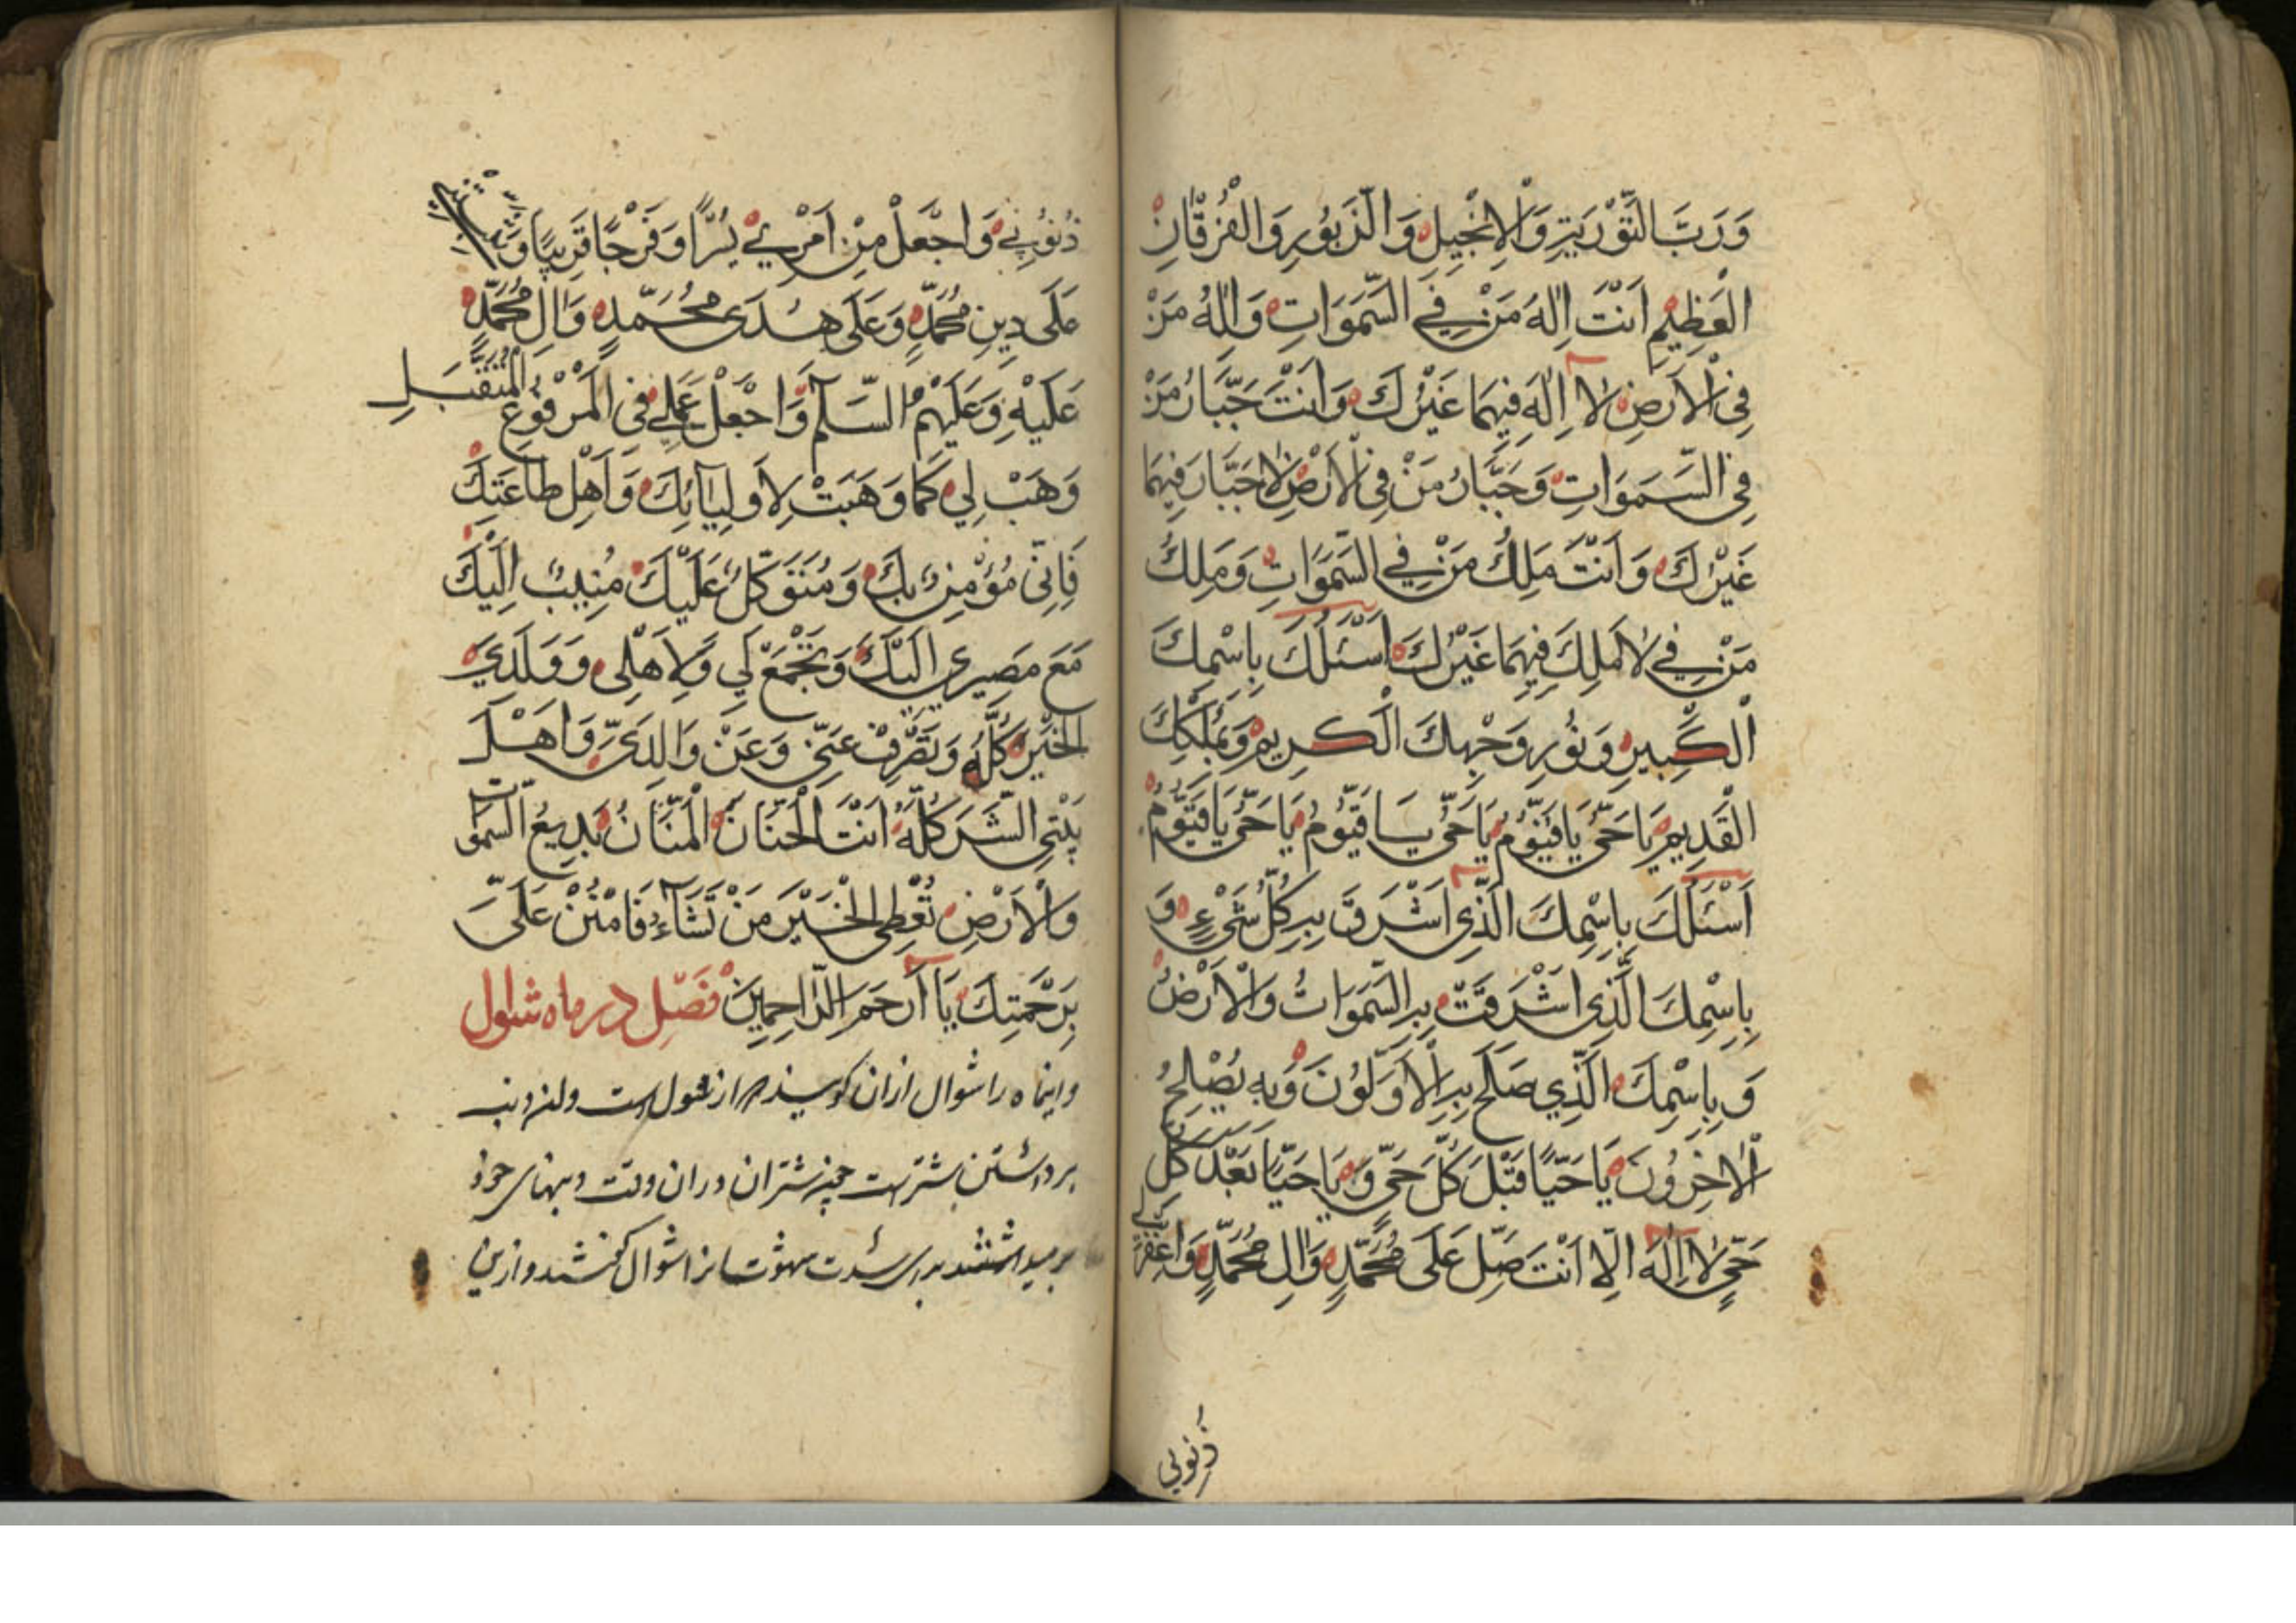 وَرَبَّ التَّوْرٰیةِ وَالْاِنْجِیلِ وَالزَّبُورِ وَالْفُرْقَانِ
الْعَظِیمِ اَنْتَ اِلٰهُ مَنْ فِی السَّمَوَاتِ وَاِلٰهُ مَنْ
فِی الْاَرْضِ لَا اِلٰهَ فِیهِمَا غَیْرُكَ وَاَنْتَ جَبَّارُ مَنْ
فِی السَّمَوَاتِ وَجَبَّارُ مَنْ فِی الْاَرْضِ لَا جَبَّارَ فِیهِمَا
غَیْرُكَ وَاَنْتَ مَلِكُ مَنْ فِی السَّمَوَاتِ وَمَلِكُ
مَنْ فِی لَا مَلِكَ فِیهِمَا غَیْرُكَ اَسْئَلُكَ بِاسْمِكَ
الْكَبِیرِ وَنُورِ وَجْهِكَ الْكَرِیمِ وَبِمُلْكِكَ
الْقَدِیمِ یَا حَیُّ یَا قَیُّومُ یَا حَیُّ یَا قَیُّومُ یَا حَیُّ یَا قَیُّومُ
اَسْئَلُكَ بِاسْمِكَ الَّذِی اَشْرَقَ بِهِ كُلُّ شَیْءٍ وَ
بِاسْمِكَ الَّذِی اَشْرَقَتْ بِهِ السَّمَوَاتُ وَالْاَرْضُ
وَبِاسْمِكَ الَّذِی صَلَحَ بِهِ الْاَوَّلُونَ وَبِهِ یَصْلَحُ
الْاٰخِرُونَ یَا حَیًّا قَبْلَ كُلِّ حَیٍّ وَیَا حَیًّا بَعْدَ كُلِّ
حَیٍّ لَا اِلٰهَ اِلَّا اَنْتَ صَلِّ عَلَی مُحَمَّدٍ وَاٰلِ مُحَمَّدٍ وَاغْفِرْ لِی
ذُنُوبِی
ذُنُوبِی وَاجْعَلْ مِنْ اَمْرِی یُسْرًا وَفَرَجًا قَرِیبًا وَثَبِّتْنِی
عَلَی دِینِ مُحَمَّدٍ وَعَلَی هُدَی مُحَمَّدٍ وَاٰلِ مُحَمَّدٍ
عَلَیْهِ وَعَلَیْهِمُ السَّلٰمُ وَاجْعَلْ عَمَلِی فِی الْمَرْفُوعِ الْمُتَقَبَّلِ
وَهَبْ لِی كَمَا وَهَبْتَ لِاَوْلِیَآئِكَ وَاَهْلِ طَاعَتِكَ
فَاِنِّی مُؤْمِنٌ بِكَ وَمُتَوَكِّلٌ عَلَیْكَ مُنِیبٌ اِلَیْكَ
مَعَ مَصِیرِی اِلَیْكَ وَتَجْمَعْ لِی وَلِاَهْلِی وَوَلَدِی
الْخَیْرَ كُلَّهُ وَتَصْرِفْ عَنِّی وَعَنْ وَالِدَیَّ وَاَهْلَ
بَیْتِی الشَّرَّ كُلَّهُ اَنْتَ الْحَنَّانُ الْمَنَّانُ بَدِیعُ السَّمَوَاتِ
وَالْاَرْضِ تُعْطِی الْخَیْرَ مَنْ تَشَآءُ فَامْنُنْ عَلَیَّ
بِرَحْمَتِكَ یَا اَرْحَمَ الرَّاحِمِینَ فصل در ماه شوال
واینماه را شوال ازان کویند که از شول است وان دنب
برداشتن شتر است چه شتران دران وقت دنبهای خود
برمیداشتند برای شدت شهوت بنابرا شوال گفتند وازین